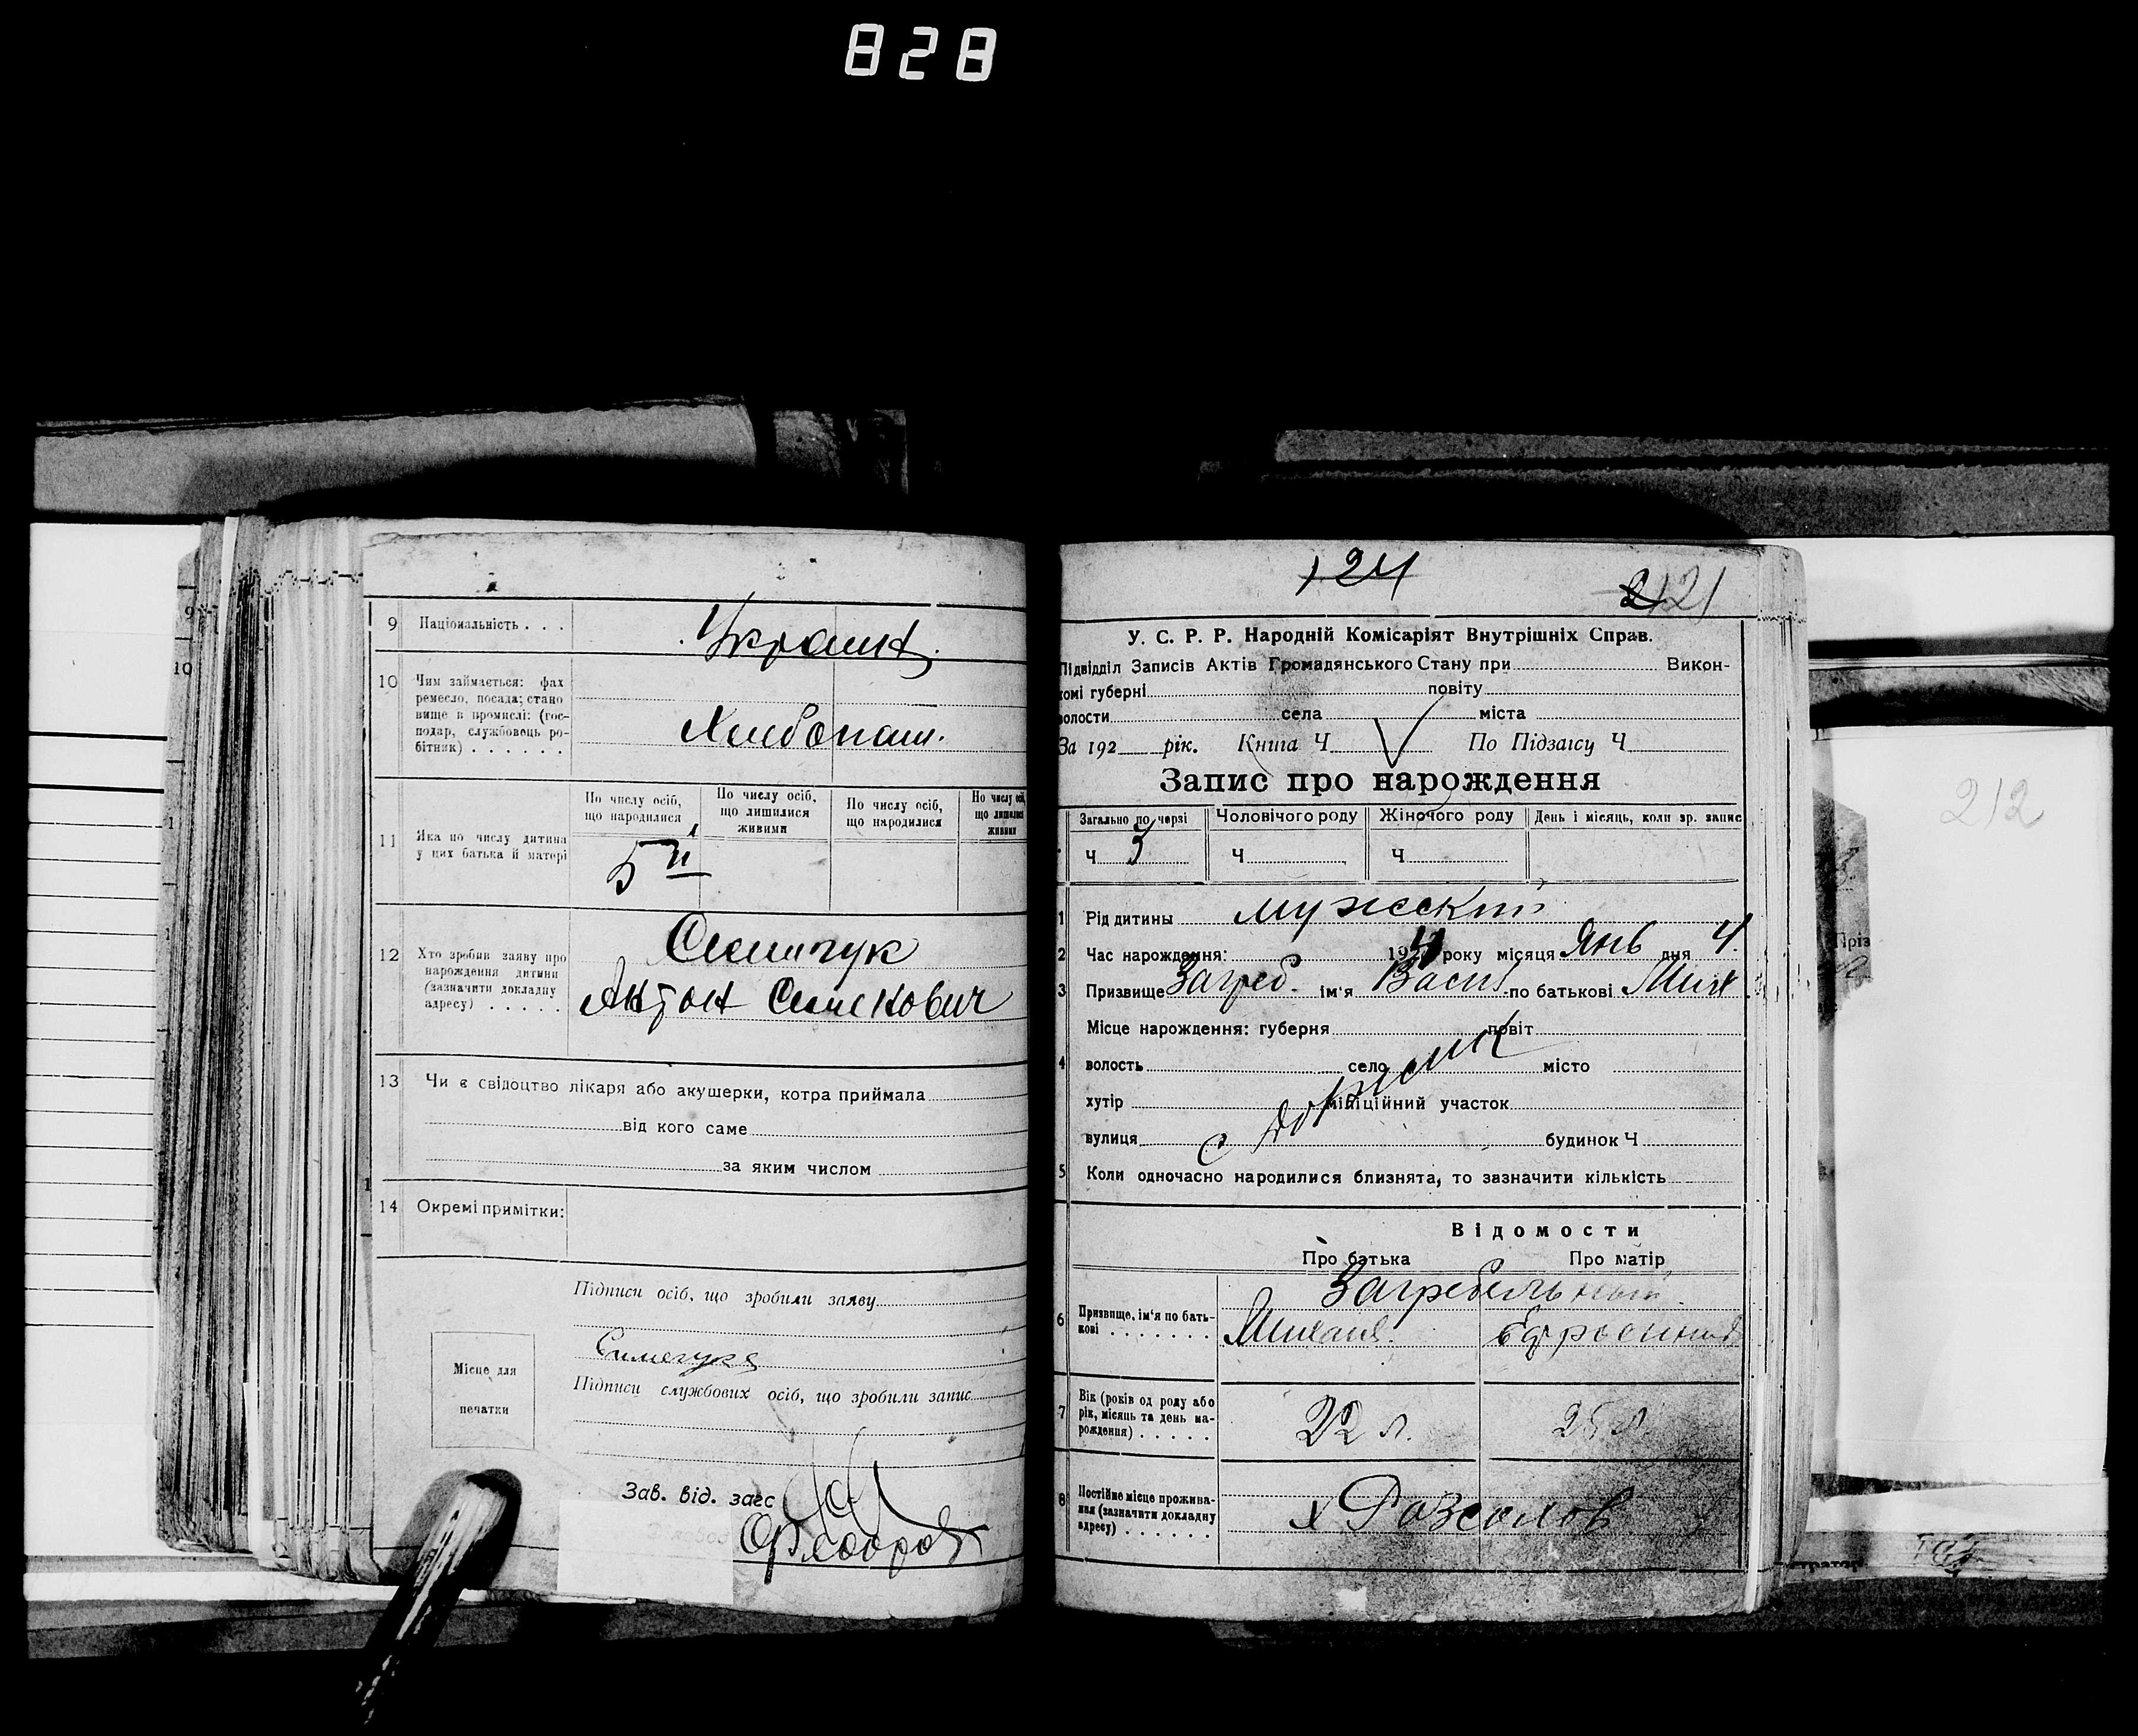 828
9 Національність . . .
Украин.
10 Чим займається: фах
ремесло, посада; стано
вище в промислі: (гос-
подар, службовець ро-
бітник) . . . . . .
Хлебопаш.
11 Яка по числу дитина
у цих батька й матері
По числу осіб,
що народилися
По числу осіб,
що лишилися
живими
По числу осіб,
що народилися
По числу осі
що лишилися
живими
5й
12 Хто зробив заяву про
нарождення дитини
(зазначити докладну
адресу) . . . . .
Семчук
Антон Семенович
13 Чи є свідоцтво лікаря або акушерки, котра приймала
від кого саме
за яким числом
14 Окремі примітки:
Підписи осіб, що зробили заяву
Підписи службових осіб, що зробили запис
Місце для
печатки
Зав. від. загс
9
10
124
2121
У. С. Р. Р. Народній Комісаріят Внутрішніх Справ.
Підвідділ Записів Актів Громадянського Стану при Викон-
комі губерні повіту
волости села міста
За 192 рік. Книга Ч По Підзагсу Ч
Запис про нарождення
Загально по черзі
Чоловічого роду
Жіночого роду
День і місяць, коли зр. запис
Ч 3
Ч
Ч
1 Рід дитины мужский
2 Час нарождення: 1924 року місяця Янв дня 4.
3 Призвище Загреб. ім'я Васил по батькові Мих
Місце нарождення: губерня повіт
4 волость село місто
хутір міліційний участок
вулиця с будинок Ч
5 Коли одночасно народилися близнята, то зазначити кількість
Відомости
Про батька Про матір
6 Призвище, ім'я по бать-
кові . . . . . . .
Загребельный.
Михаил. Ефросиния
7 Вік (років од роду або
рік, місяць та день на-
рождення) . . . . .
22 л. 25 л.
8 Постійне місце прожива-
ння (зазначити докладну
адресу) . . . . . .
х Розсолов
212